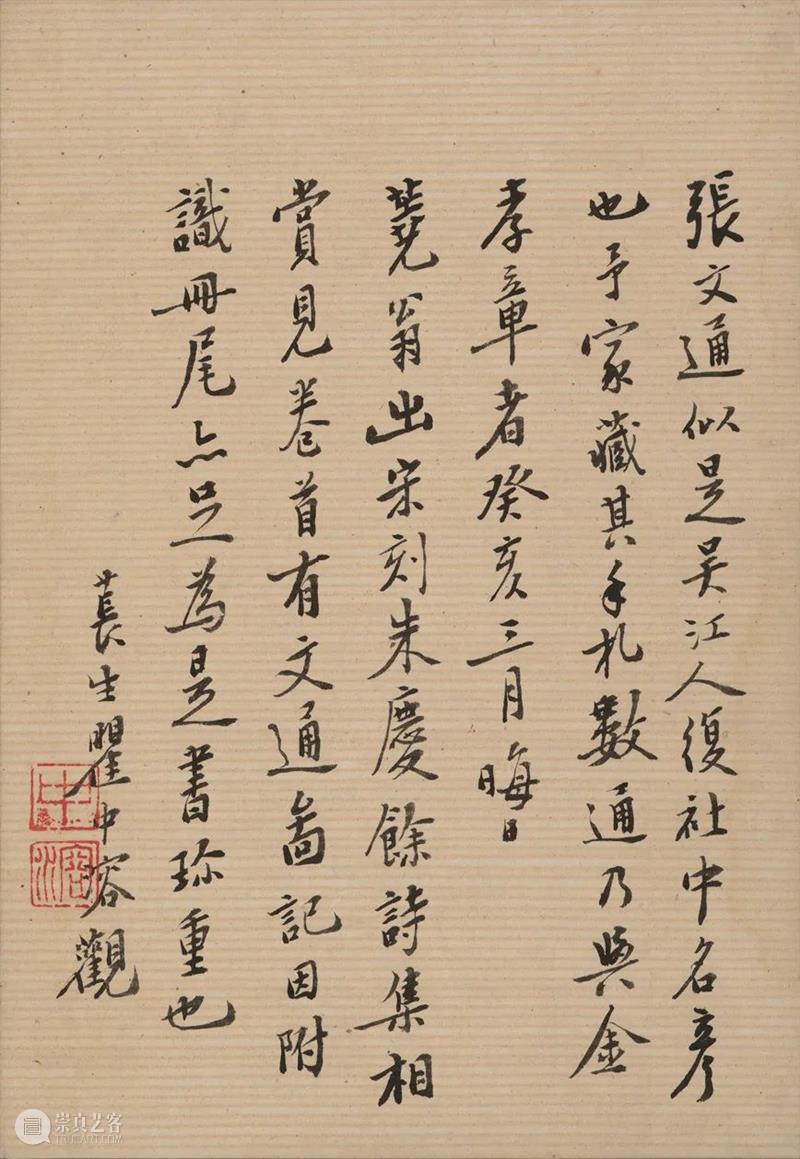 張文通似是吳江人復社中名彥
也予家藏其手札數通乃與金
孝章者癸亥三月晦日
蕘翁出宋刻朱慶餘詩集相
賞見卷首有文通啚記因附
識冊尾亦足為是書珍重也
萇生瞿中容觀
崇真艺客
TRUEART.COM